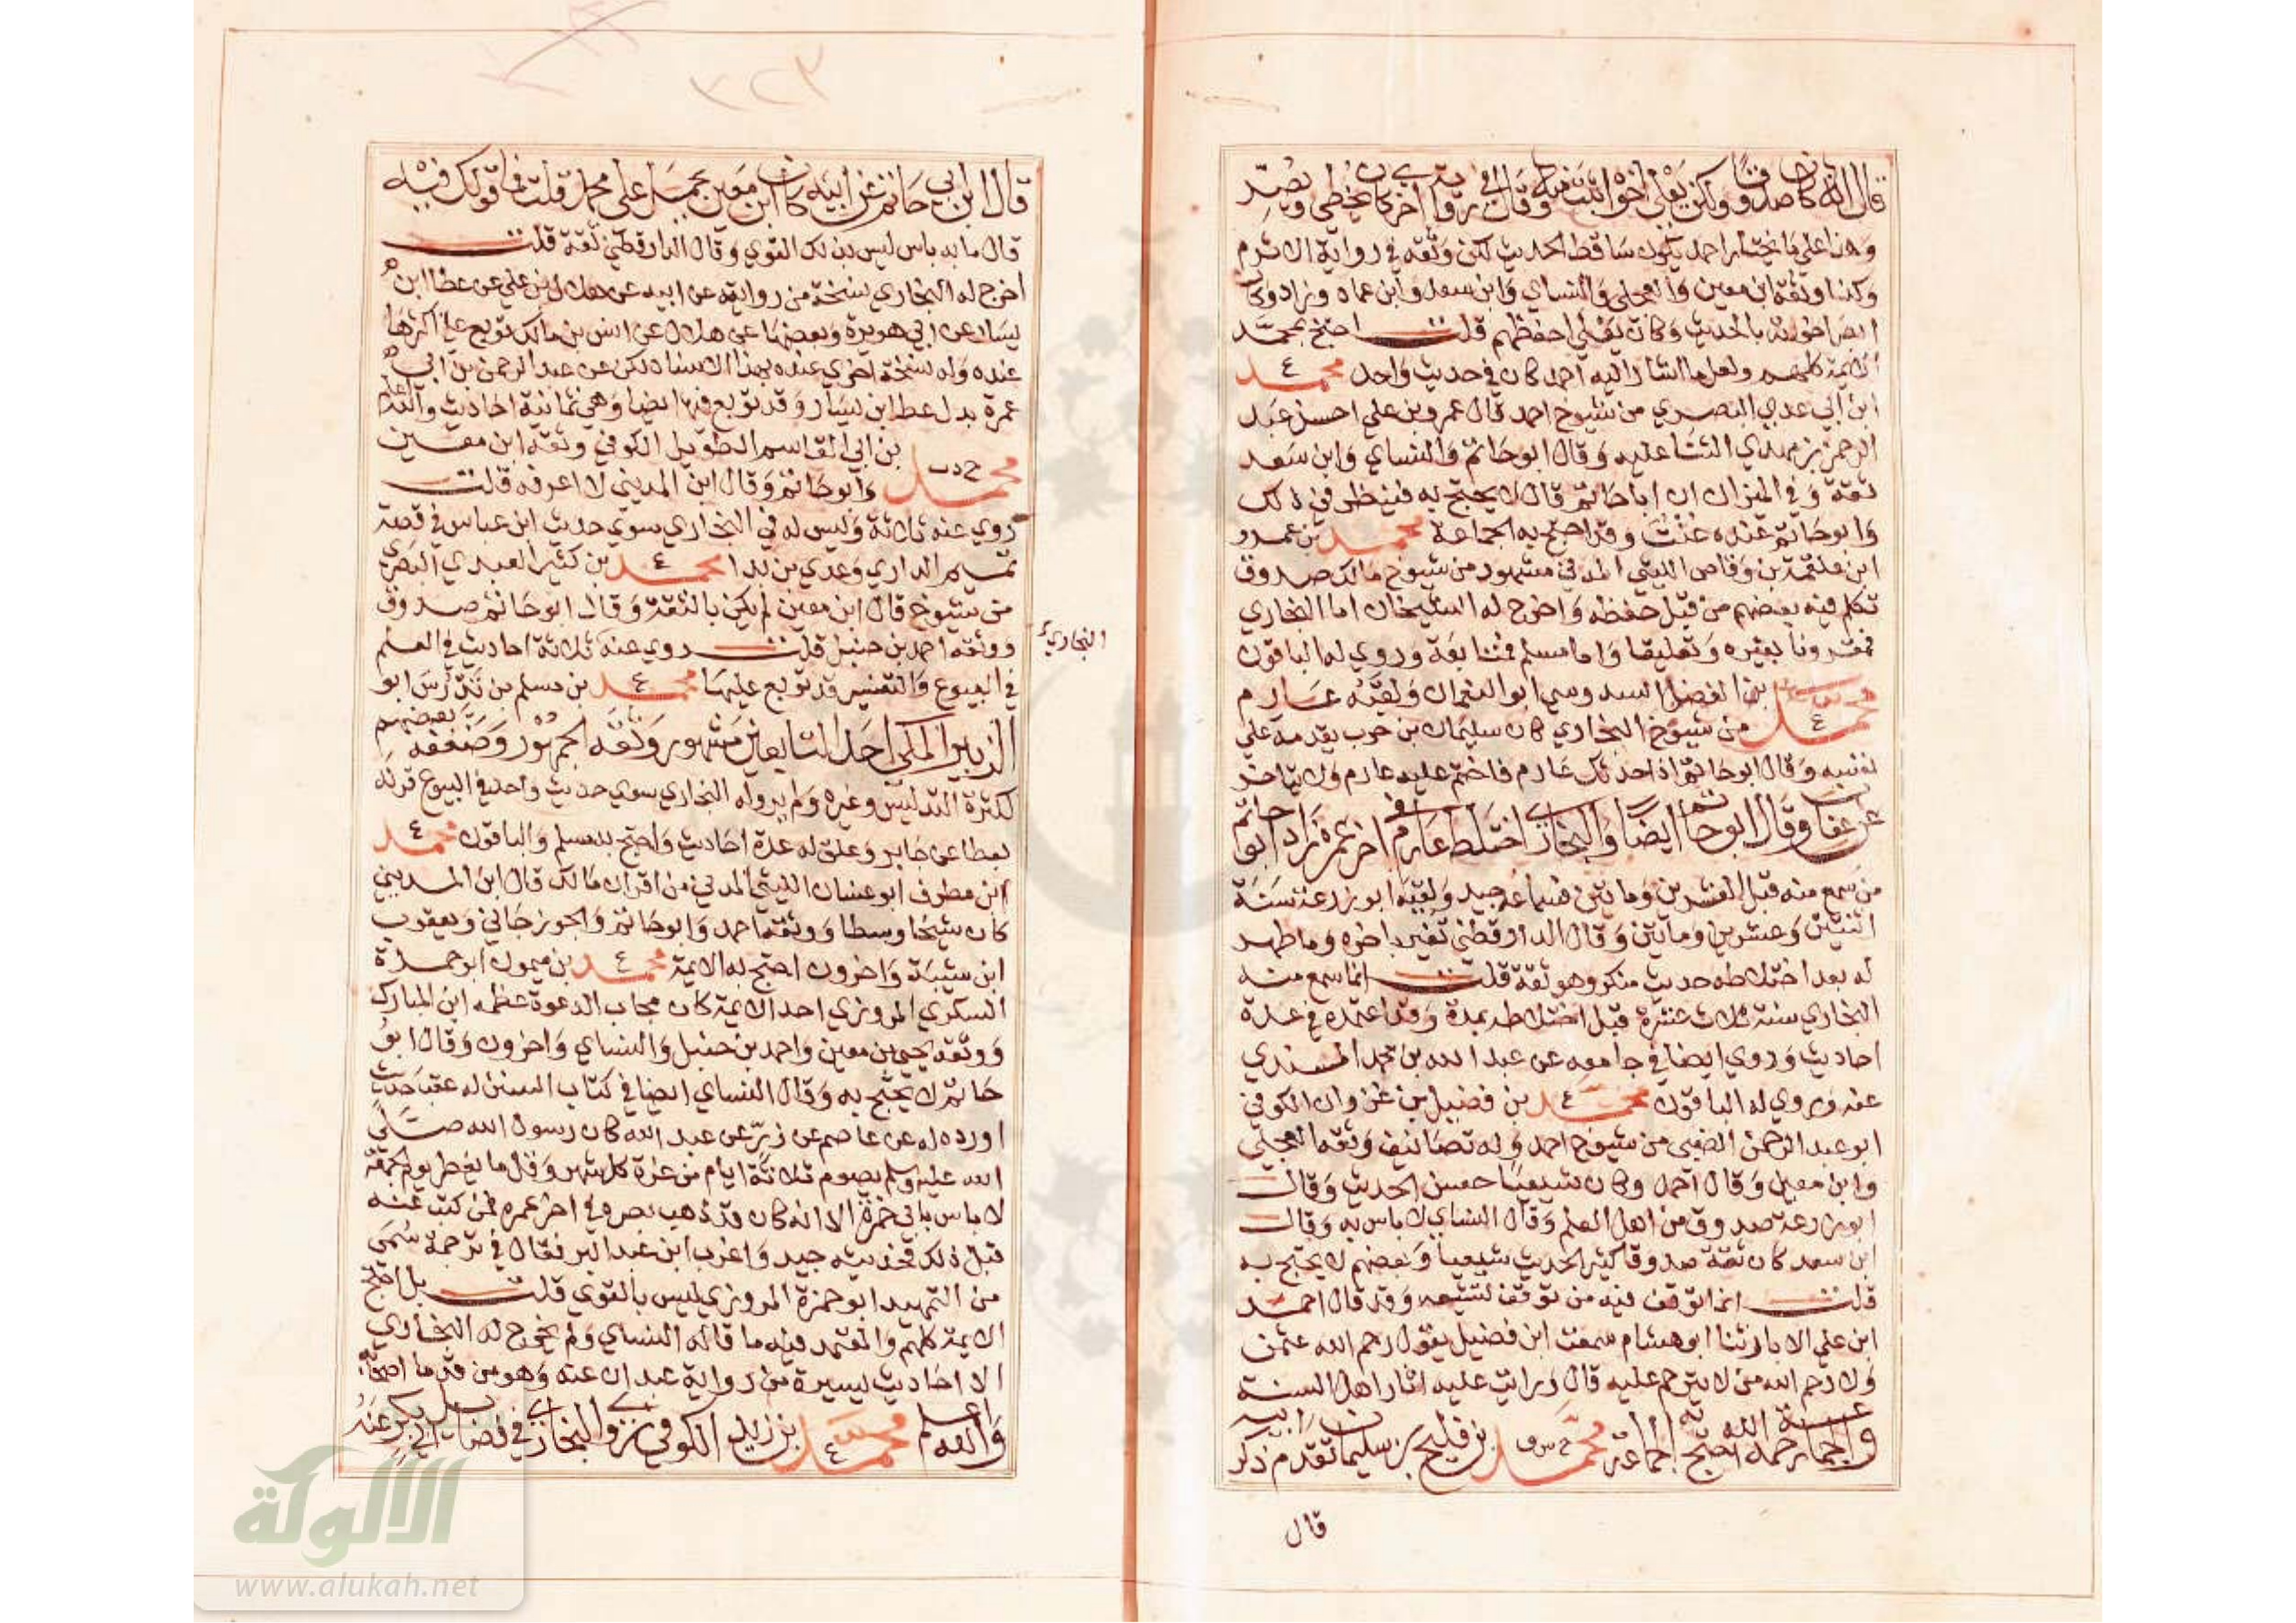 قال انه كان صدوقا ولكن يعلى اخوه اثبت منه وقال في رواية اخرى كان يخطي ويصر
وهذا على ما يختار احمد يكون ساقط الحديث لكن وثقه في رواية الاثرم
وكذا وثقه ابن معين والعجلي والنساي وابن سعد وابن عمار وزاد وكان
ابصر اخوته بالحديث وكان يعلى احفظهم قلت احتج بمحمد
الايمة كلهم ولعل ما اشار اليه احمد كان في حديث واحد محمد ع
ابن ابي عدي البصري من شيوخ احمد قال عمرو بن علي احسن عبد
الرحمن بن مهدي الثنا عليه وقال ابو حاتم والنساي وابن سعد
ثقة وفي الميزان ان ابا حاتم قال لا يحتج به فينظر في ذلك
وابو حاتم عنده عنت وقد احتج به الجماعة محمد بن عمرو
ابن علقمة بن وقاص الليثي المدني مشهور من شيوخ مالك صدوق
تكلم فيه بعضهم من قبل حفظه واخرج له الشيخان اما البخاري
فمقرونا بغيره وتعليقا واما مسلم فمتابعة وروى له الباقون
محمد ع بن الفضل السدوسي ابو النعمان ولقبه عارم
من شيوخ البخاري كان سليمان بن حرب يقدمه على
نفسه وقال ابو حاتم اذا حدثك عارم فاختم عليه عارم ولا يتاخر
عن عفان وقال ابو حاتم ايضا والبخاري اختلط عارم في اخر عمره زاد ابو حاتم
من سمع منه قبل العشرين وماتين فسماعه جيد ولقيه ابو زرعة سنة
اثنتين وعشرين وماتين وقال الدارقطني تغير باخره وما ظهر
له بعد اختلاطه حديث منكر وهو ثقة قلت انما سمع منه
البخاري سنة ثلاث عشرة قبل اختلاطه بمدة وقد اعتمده في عدة
احاديث وروى ايضا في جامعه عن عبد الله بن محمد المسندي
عنه وروى له الباقون محمد ع بن فضيل بن غزوان الكوفي
ابو عبد الرحمن الضبي من شيوخ احمد وله تصانيف وثقه العجلي
وابن معين وقال احمد وكان شيعيا حسن الحديث وقال
ابو زرعة صدوق من اهل العلم وقال النساي لا باس به وقال
ابن سعد كان ثقة صدوقا كثير الحديث شيعيا وبعضهم لا يحتج به
قلت انما توقف فيه من توقف لتشيعه وقد قال احمد
ابن علي الابار ثنا ابو هشام سمعت ابن فضيل يقول رحم الله عثمن
ولا رحم الله من لا يترحم عليه قال ورايت عليه اثار اهل السنة
والجماعة رحمه الله احتج به الجماعة محمد خ س ق بن فليح بن سليمان تقدم ذكر ابيه
قال
٣٢٣
قال ابن ابي حاتم عن ابيه كان ابن معين يحمل على محمد قلت فما قولك فيه
قال ما به باس ليس بذلك القوي وقال الدارقطني ثقة قلت
اخرج له البخاري نسخة من روايته عن ابيه عن هلال بن علي عن عطا ابن
يسار عن ابي هريرة وبعضها عن هلال عن انس بن مالك توبع على اكثرها
عنده وله نسخة اخرى عنده بهذا الاسناد لكن عن عبد الرحمن بن ابي
عمرة بدل عطا ابن يسار وقد توبع فيها ايضا وهي ثمانية احاديث والله اعلم
محمد خ د ت بن ابي القاسم الطويل الكوفي وثقه ابن معين
وابو حاتم وقال ابن المديني لا اعرفه قلت
روى عنه ثلاثة وليس له في البخاري سوى حديث ابن عباس في قصة
تميم الداري وعدي بن بدا محمد ع بن كثير العبدي البصري
من شيوخ قال ابن معين لم يكن بالثقة وقال ابو حاتم صدوق
البخاري
ووثقه احمد بن حنبل قلت روى عنه ثلاثة احاديث في العلم
في البيوع والتفسير قد توبع عليها محمد ع بن مسلم بن تدرس ابو
الزبير المكي احد التابعين مشهور وثقه الجمهور وضعفه بعضهم
لكثرة التدليس وغيره ولم يرو له البخاري سوى حديث واحد في البيوع قرنه
بعطا عن جابر وعلق له عدة احاديث واحتج به مسلم والباقون محمد ع
ابن مطرف ابو غسان الليثي المدني من اقران مالك قال ابن المديني
كان شيخا وسطا ووثقه احمد وابو حاتم والجوزجاني ويعقوب
ابن شيبة واخرون احتج به الايمة محمد ع بن ميمون ابو حمزة
السكري المروزي احد الايمة كان مجاب الدعوة عظمه ابن المبارك
ووثقه يحيى بن معين واحمد بن حنبل والنساي واخرون وقال ابو
حاتم لا يحتج به وقال النساي ايضا في كتاب السنن له عقب حديث
اورده له عن عاصم عن زر عن عبد الله كان رسول الله صلى
الله عليه وسلم يصوم ثلاثة ايام من غرة كل شهر وقل ما يفطر يوم الجمعة
لا باس بابي حمزة الا انه كان قد ذهب بصره في اخر عمره فمن كتب عنه
قبل ذلك فحديثه جيد واغرب ابن عبد البر فقال في ترجمة سمي
من التمهيد ابو حمزة المروزي ليس بالقوي قلت بل احتج
الايمة كلهم والمعتمد فيه ما قاله النساي ولم يخرج له البخاري
الا احاديث يسيرة من رواية عبدان عنه وهو من قدما اصحابه
والله اعلم محمد ع بن يزيد الكوفي يروي البخاري في فضايل ابي بكر عنه
الألوكة
www.alukah.net